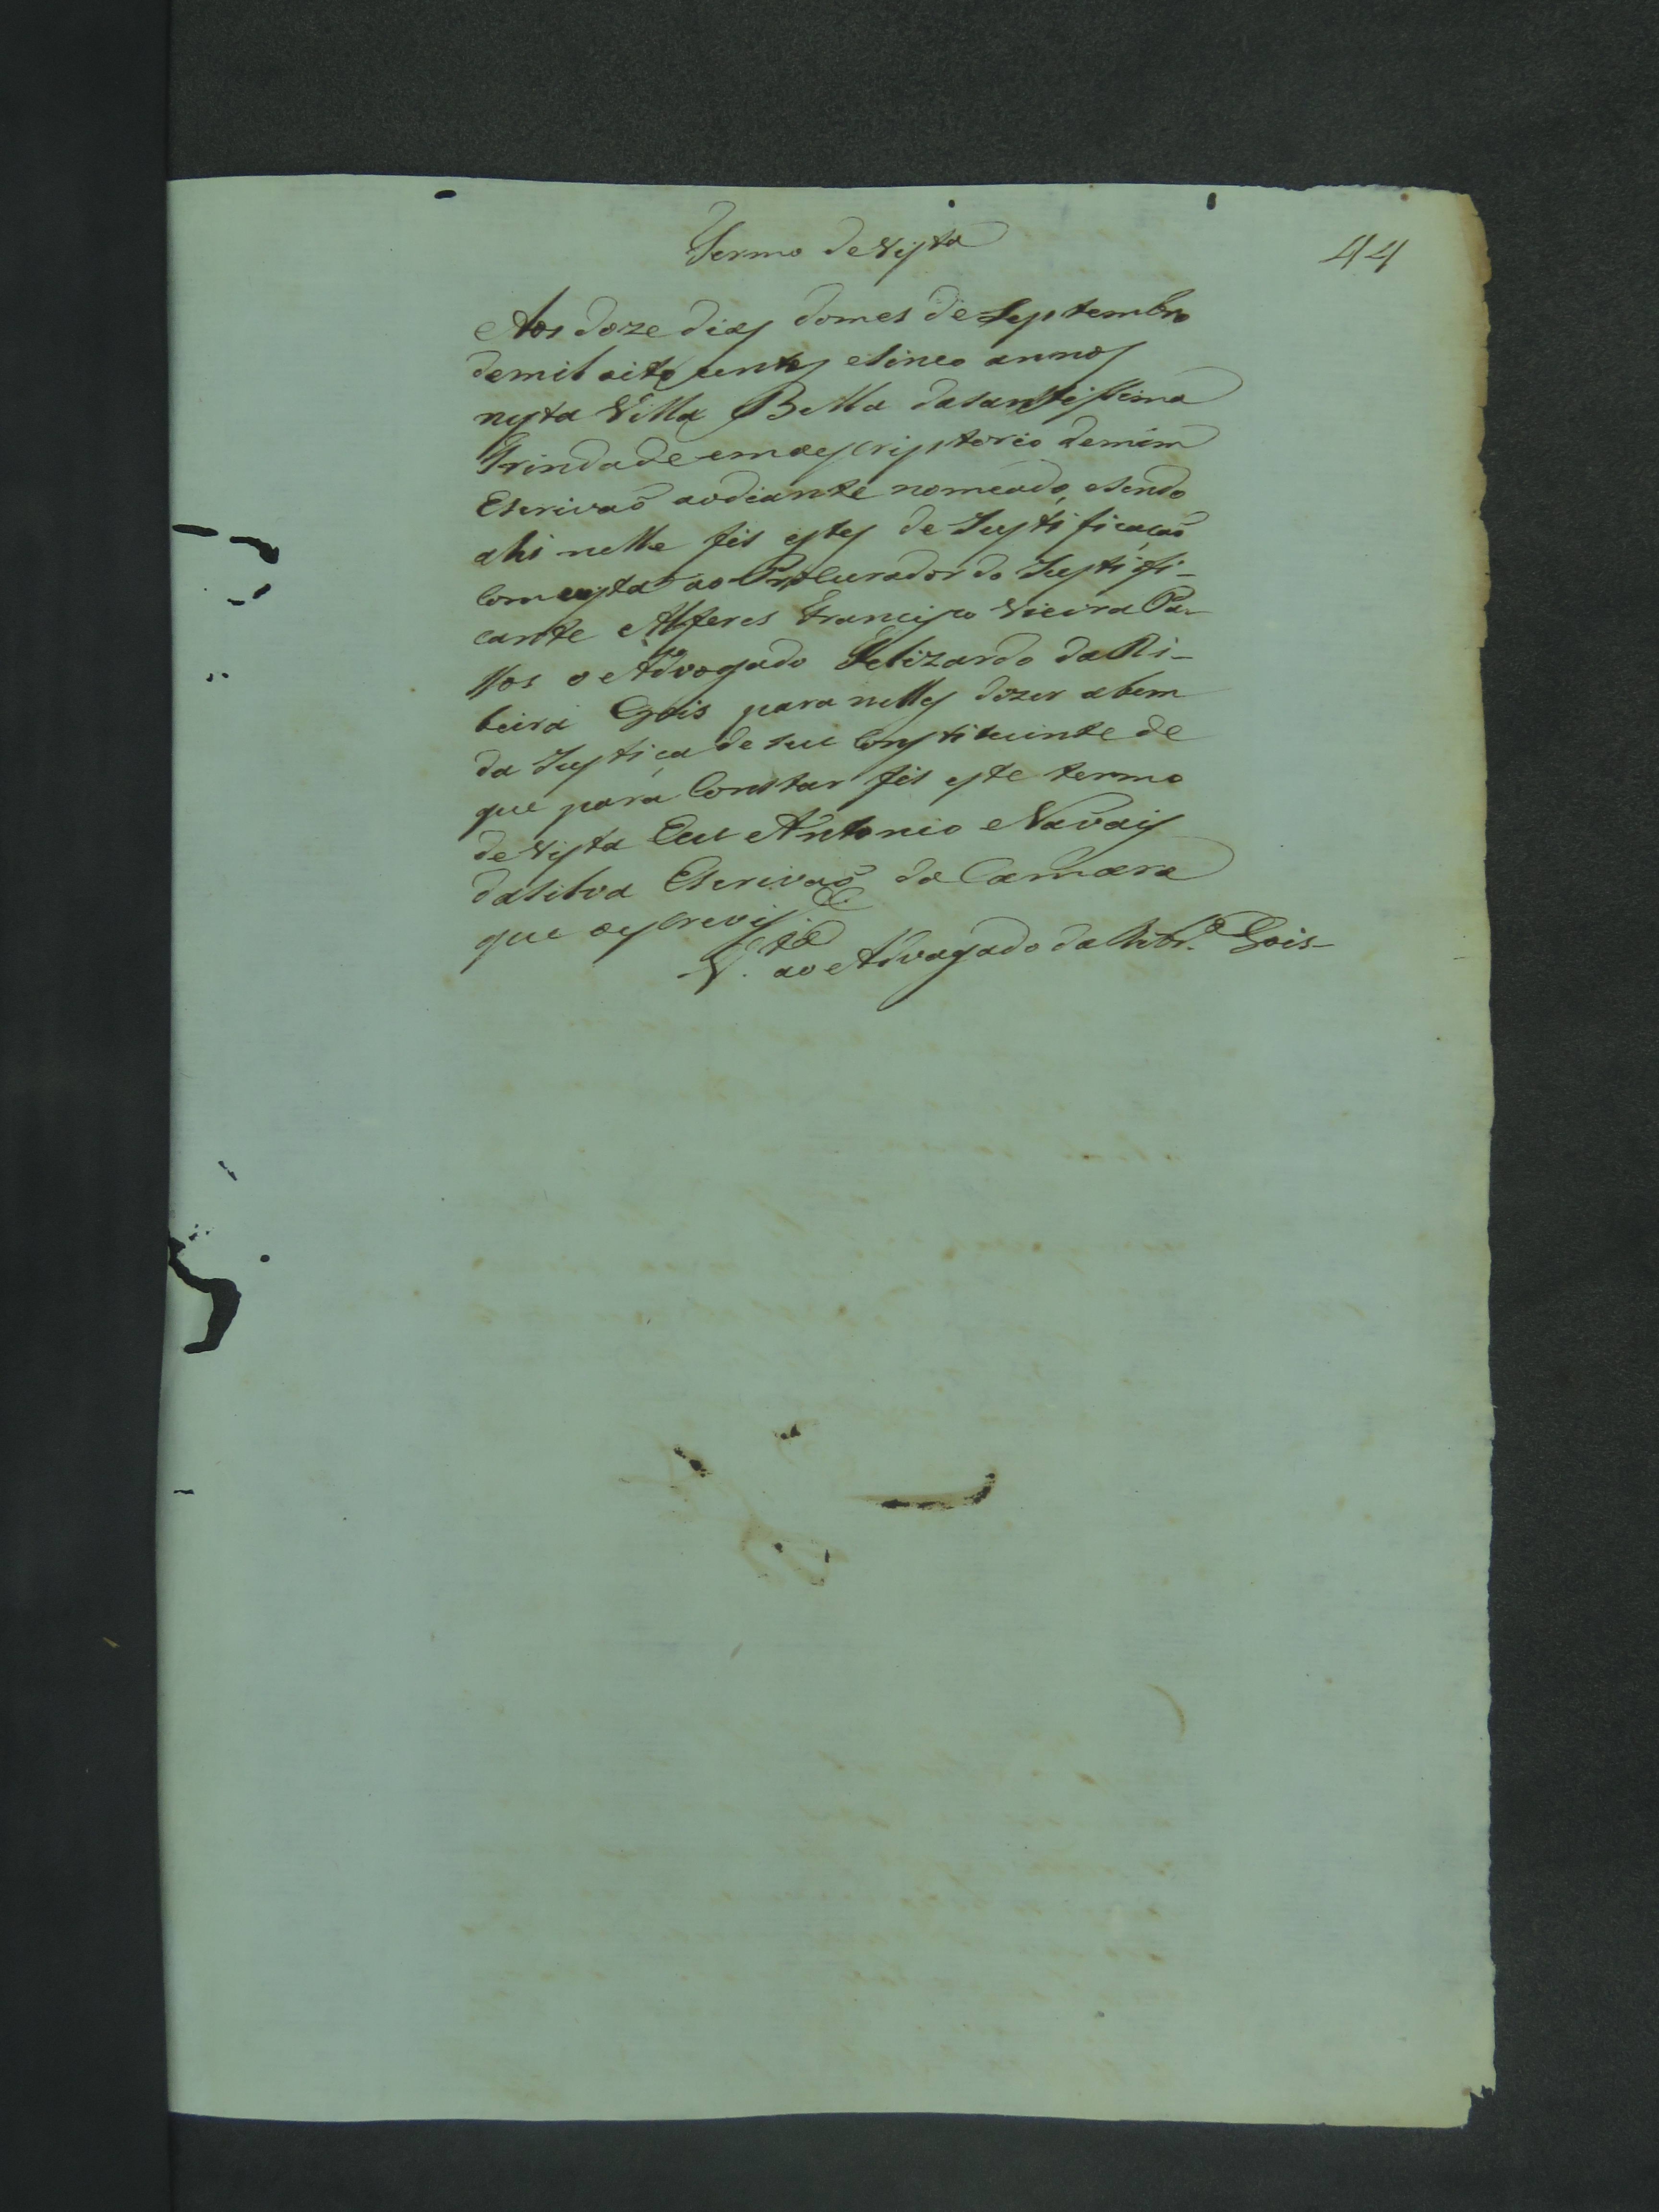 Termo de Vista
44
Aos doze dias do mes de Septembro
de mil oito centos e sinco annos
nesta Villa Bella da santissima
Trindade em o escriptorio de mim
Escrivaõ ao diante nomeado, e sendo
ahi nelle fis estes de Justificaçaõ
Com vista ao Procurador do Justifi-
cante Alferes Francisco Vieira Pa-
ssos o Advogado Felizardo da Ri-
beira Gois para nelles dizer a bem
da Justiça de seu Constituinte de
que para Constar fis este termo
de Vista Eu Antonio Navais
da Silva Escrivaõ da Camara
que o escrevy
V.ta ao Advogado da Ribr.ª Gois-